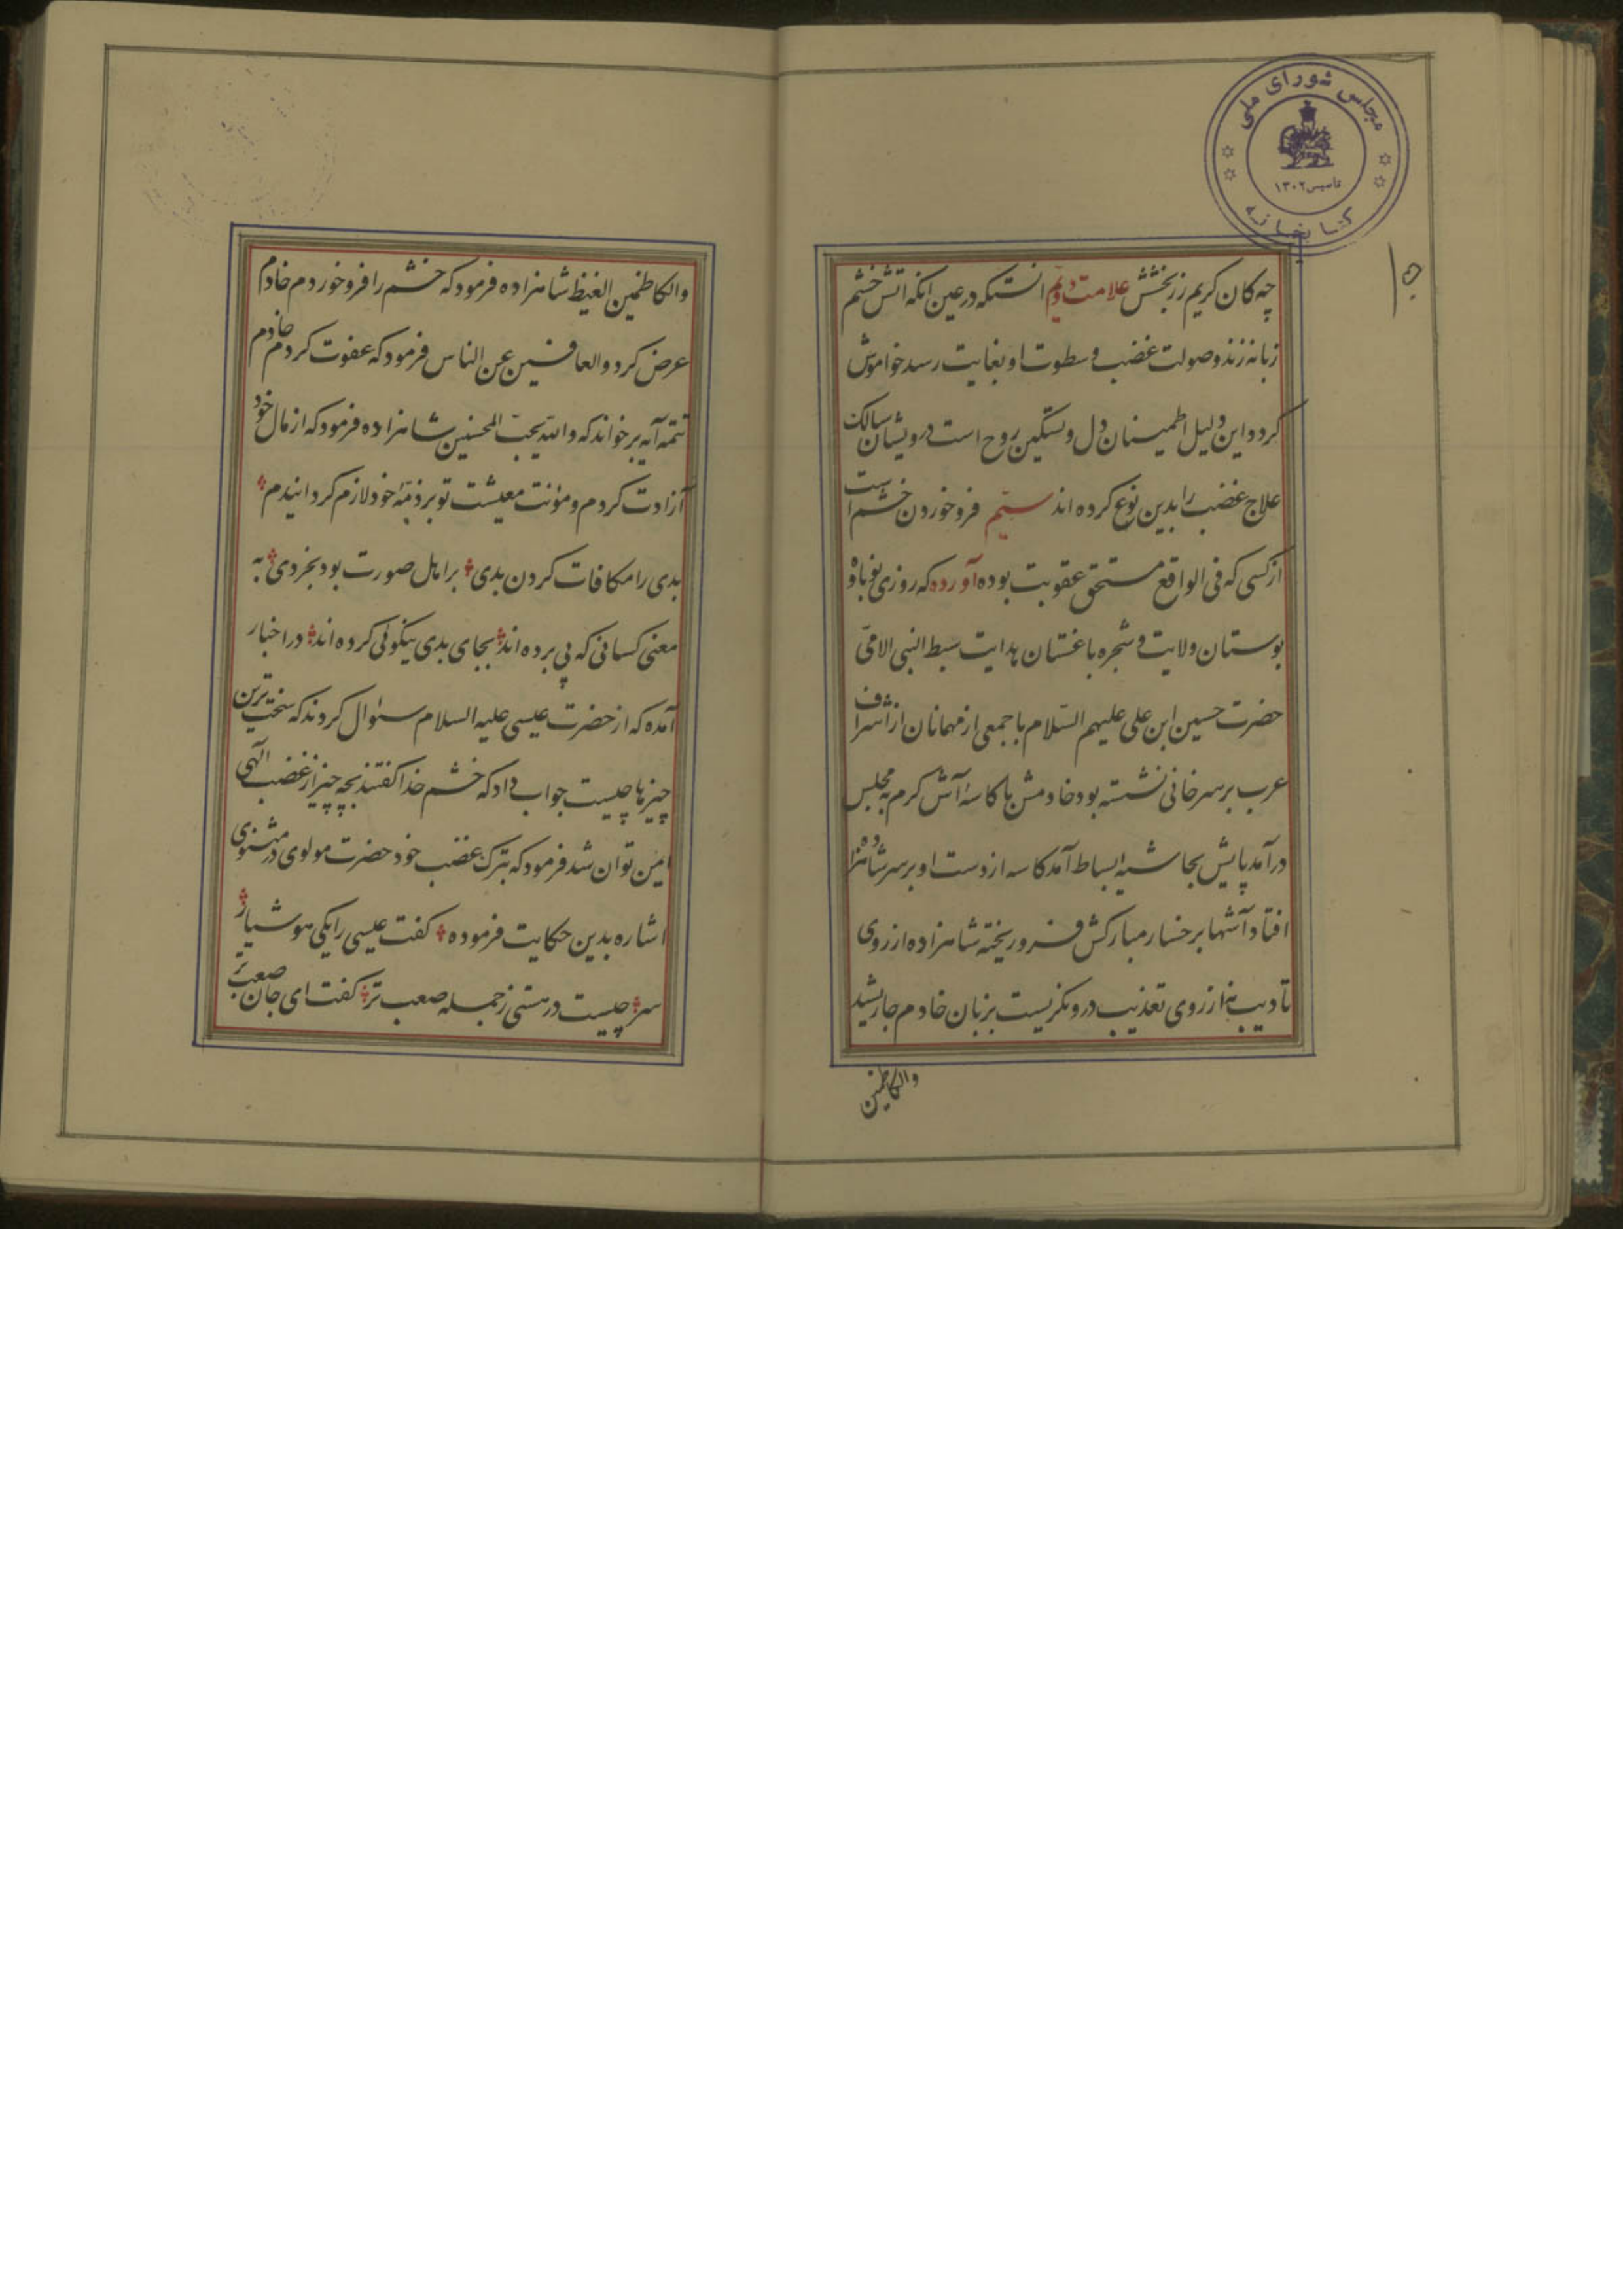 مجلس شورای ملی
تاسیس ۱۳۰۲
کتابخانه
۱۵
چه کان کریم زر بخشش علامت دویم انستکه در عین انکه اتش خشم
زبانه زند و صولت غضب و سطوت او بغایت رسد خواموش
کرد و این دلیل اطمینان دل و تسکین روح است درویشان سالک
علاج غضب را بدین نوع کرده اند سیم فرو خوردن خشم است
از کسی که فی الواقع مستحق عقوبت بوده آورده که روزی نوباوه
بوستان ولایت و شجره باغستان هدایت سبط النبی الامی
حضرت حسین ابن علی علیهم السّلام با جمعی از مهمانان از اشراف
عرب بر سر خانی نشسته بود خادمش با کاسهٔ آش کرم به مجلس
در آمد پایش بحاشیه بساط آمد کاسه از دست او بر سر شاهزاده
افتاد آشها بر خسار مبارکش فرو ریخته شاهزاده از روی
تادیب نه از روی تعذیب در و نکریست بر زبان خادم جاریشد
والکاظمین
والکاظمین الغیظ شاهزاده فرمود که خشم را فرو خوردم خادم
عرض کرد و العافین عن الناس فرمود که عفوت کردم خادم
تتمه آیه بر خواند که والله یحبّ المحسنین شاهزاده فرمود که از مال خود
آزادت کردم و مؤنت معیشت تو بر ذمّهٔ خود لازم کردانیدم
بدی را مکافات کردن بدی بر اهل صورت بود بخردی به
معنی کسانی که پی برده اند بجای بدی نیکوئی کرده اند در اخبار
آمده که از حضرت عیسی علیه السلام سئوال کردند که سخت ترین
چیزها چیست جواب داد که خشم خدا کفتند بچه چیز از غضب الهی
امین توان شد فرمود که بترک غضب خود حضرت مولوی در مثنوی
اشاره بدین حکایت فرموده کفت عیسی را یکی هوشیار
سر چیست در هستی ز جمله صعب تر کفت ای جان صعب تر